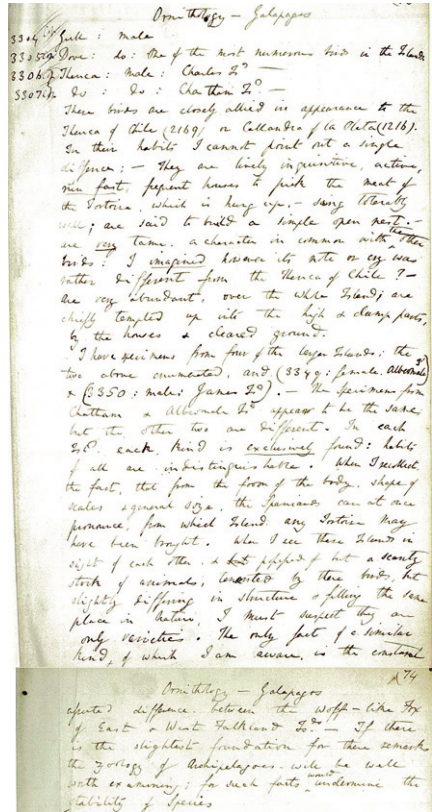 Ornithology — Galapagos
3304 Gull: male
3305 Dove: do: One of the most numerous birds in the Islands
3306 Thenca: male: Charles Isd —
3307 do: do: Chatham Isd. —
These birds are closely allied in appearance to the
Thenca of Chile (2169) or Callandra of la Plata (1216).
In their habits I cannot point out a single
difference; — They are lively inquisitive, active,
run fast, frequent houses to pick the meat of
the Tortoise, which is hung up. — sing tolerably
well; are said to build a simple open nest. —
are very tame, a character in common with the other
birds: I imagined however its note or cry was
rather different from the Thenca of Chile? —
are very abundant, over the whole Island; are
chiefly tempted up into the high & damp parts,
by the houses & cleared ground.
I have specimens from four of the larger Islands; the
two above enumerated, and (3349: female. Albemarle
& (3350: male: James Isd). — The specimens from
Chatham & Albemarle Isd appear to be the same;
but the other two are different. In each
Isld. each kind is exclusively found: habits
of all are indistinguishable. When I recollect,
the fact, that from the form of the body, shape of
scales & general size, the Spaniards can at once
pronounce, from which Island any Tortoise may
have been brought. When I see these Islands in
sight of each other, & possessed of but a scanty
stock of animals, tenanted by these birds, but
slightly differing in structure & filling the same
place in Nature, I must suspect they are
only varieties. The only fact of a similar
kind of which I am aware, is the constant
74
Ornithology — Galapagos
asserted difference between the wolf-like Fox
of East & West Falkland Isds. — If there
is the slightest foundation for these remarks
the zoology of Archipelagoes will be well
worth examining; for such facts would undermine the
stability of Species